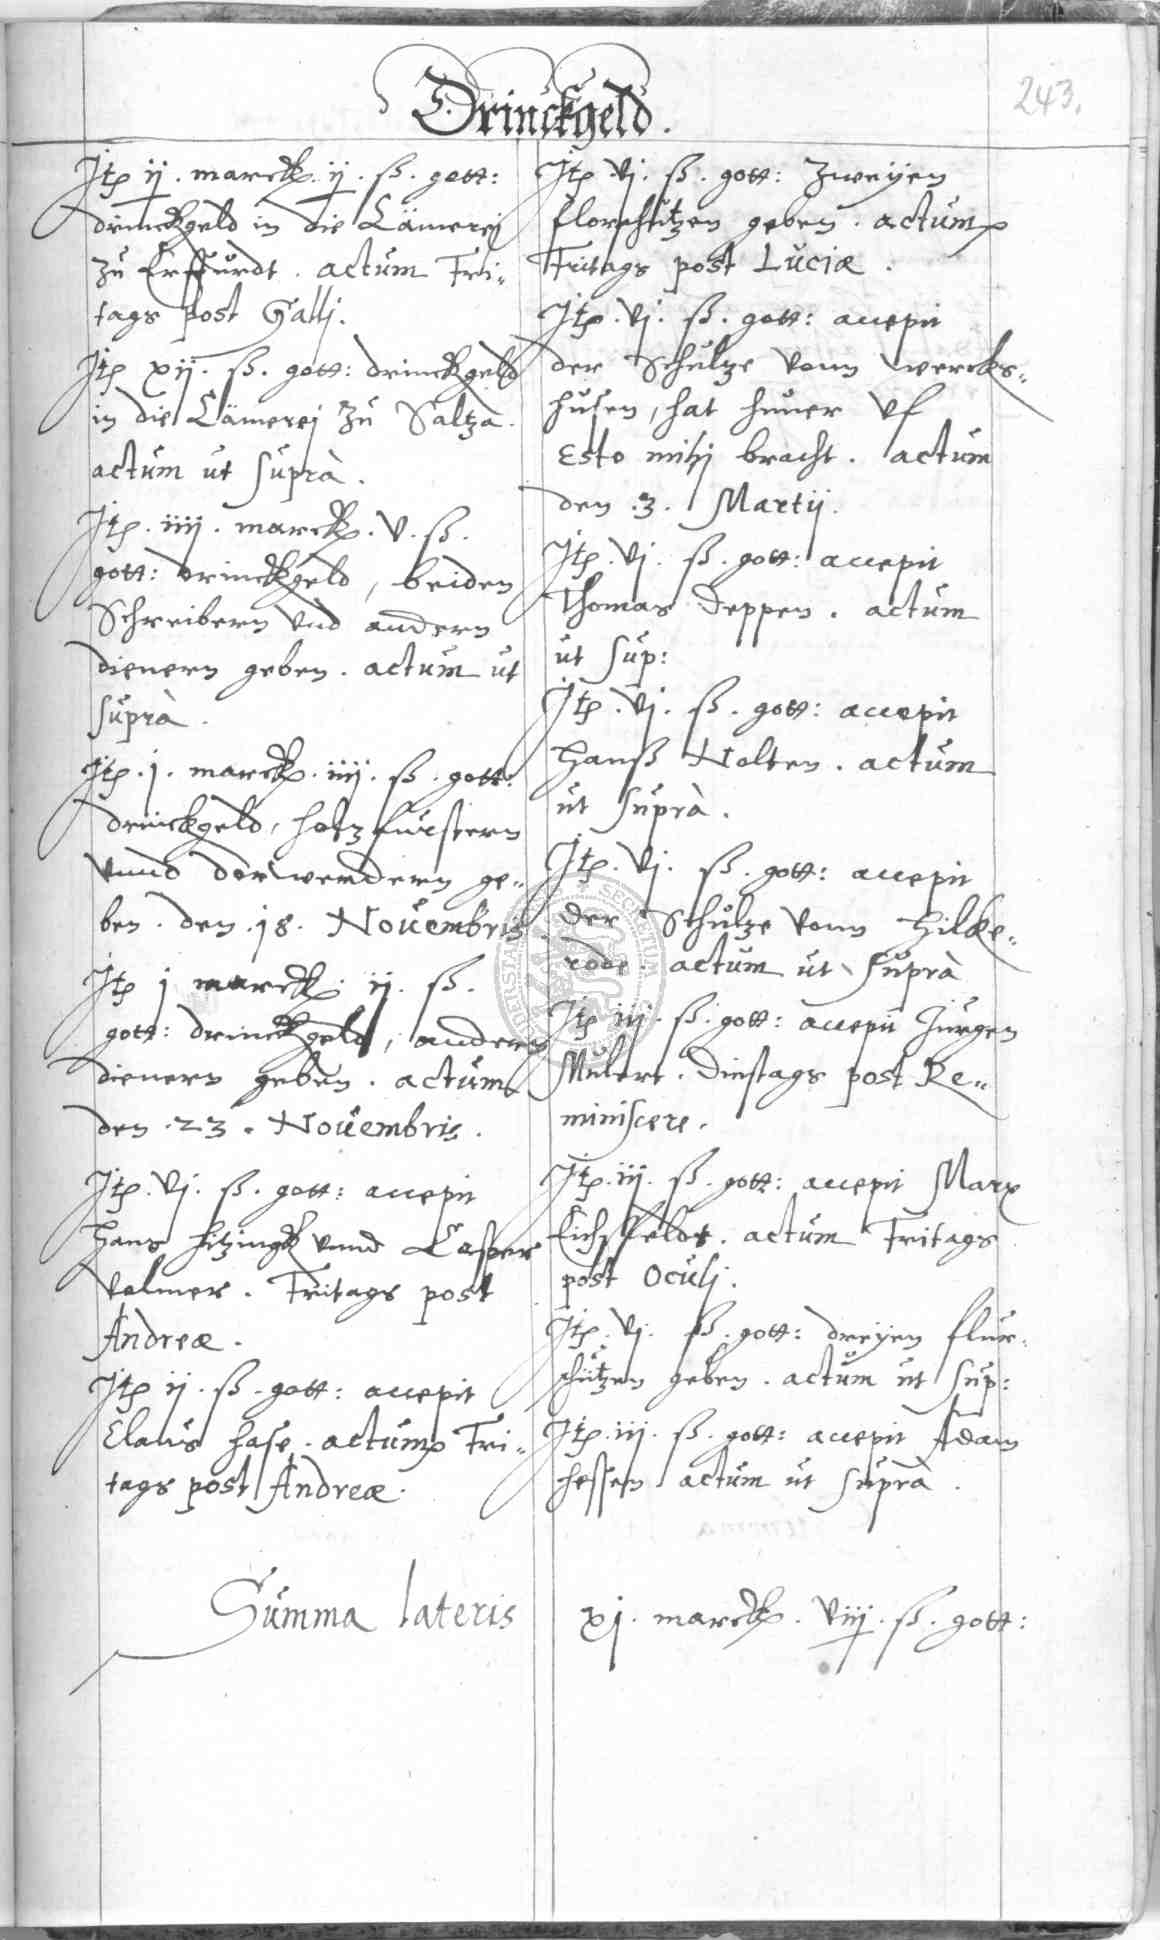 Drinckgeld.
243.
Jtp ij. marck. ij. ß. gott:
drinckgeld in die Cämerej
zu Erffurdt. actum Fri-
tags post Galli.
Jtp xij. ß. gott: drinckgeld
in die Cämerej zu Saltza.
actum ut suprà.
Jtp. iiij. marck. v. ß.
gott: drinckgeld, beiden
Schreibern vnd andern
dienern geben. actum ut
suprà.
Jtp. j. marck. iiij. ß. gott:
drinckgeld, holtzfurstern
vnnd
geben. den .18. Novembris
Jtp j marck. ij. ß.
gott: drinckgeld, andern
dienern geben. actum
den .23. Novembris.
Jtp. vj. ß. gott: accepit
Hans Hitzingk vnnd Casper
Volmer. Fritags post
Andreæ.
Jtp ij. ß. gott: accepit
Claus Hase. actum Fri-
tags post Andreæ.
Jtp. vj. ß. gott: Zweyen
florschützen geben. actum
Fritags post Luciæ.
Jtp. vj. ß. gott: accepit
der Schultze vonn wercks-
husen, hat huner vf
Esto mihj bracht. actum
den .3. Martij.
Jtp. vj. ß. gott: accepit
Thomas Deppen. actum
ut sup:
Jtp. vj. ß. gott: accepit
Hanß Nolten. actum
ut suprà.
Jtp. vj. ß. gott: accepit
der Schultze vonn Hilke-
rode. actum ut suprà
Jtp iij. ß. gott: accepit Jurgen
Mulert. Dinstags post Re-
miniscere.
Jtp. iij. ß. gott: accepit Marx
Eichsfeldt. actum Fritags
post Oculj.
Jtp. vj. ß. gott: dreyen flur-
schützen geben. actum ut sup:
Jtp. iij. ß. gott: accepit Adam
Hessen actum ut suprà.
Summa lateris xj. marck. viij. ß. gott: